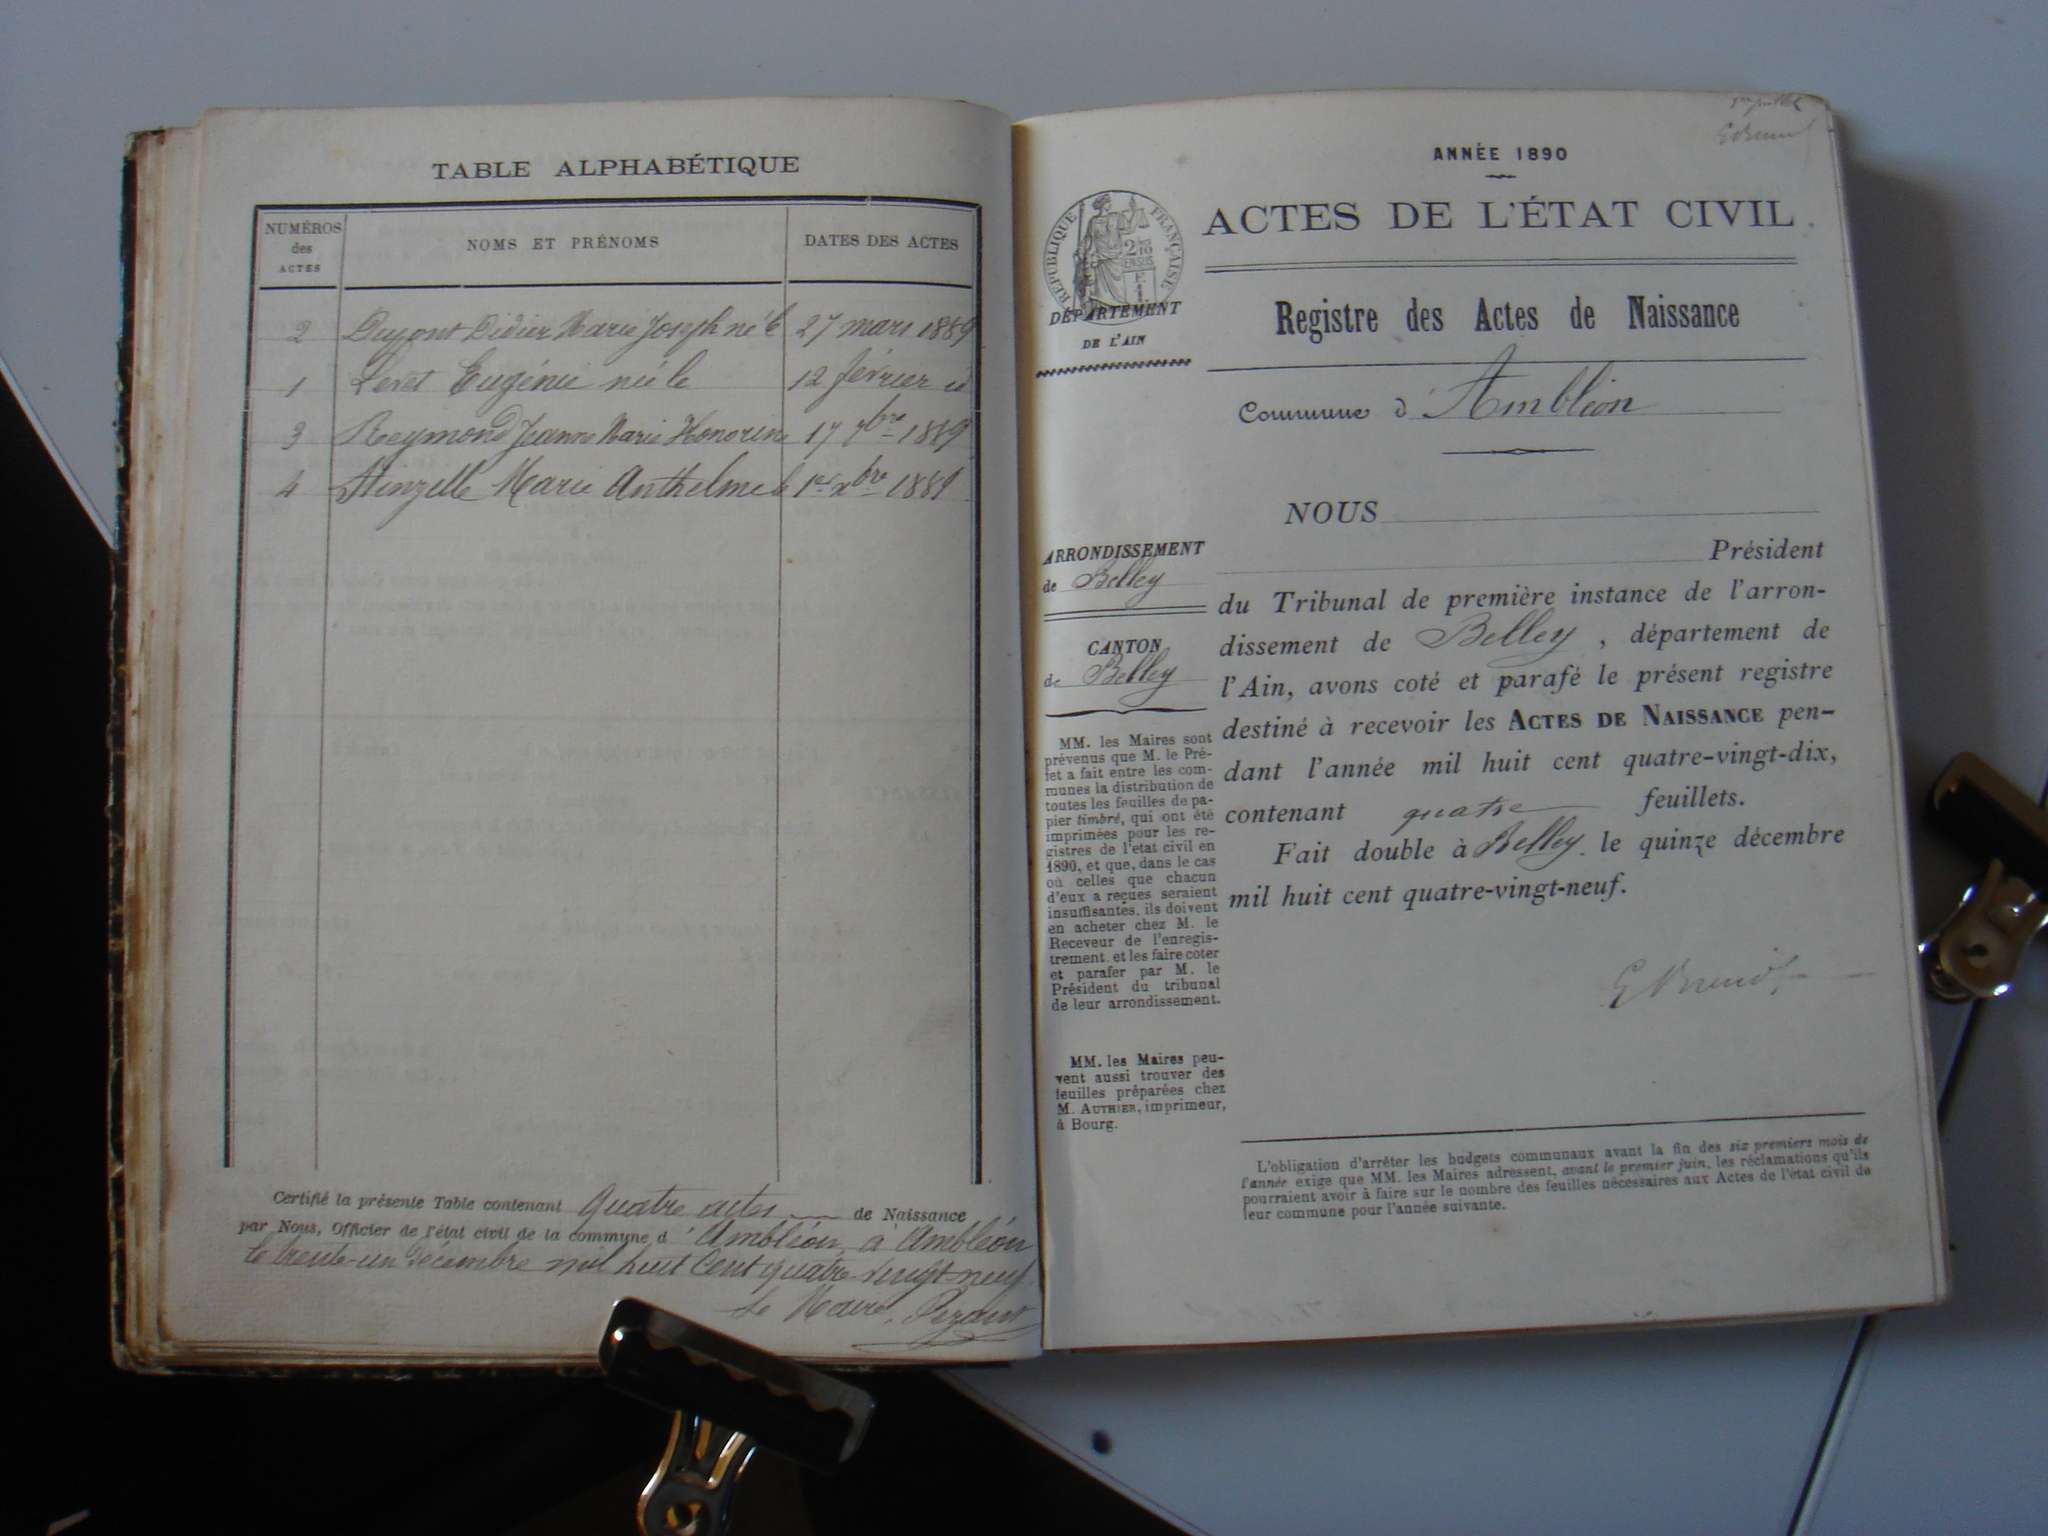 TABLE ALPHABÉTIQUE
NUMÉROS
des
ACTES
NOMS ET PRÉNOMS
DATES DES ACTES
2 Dupont Didier Marie Joseph né le 27 mars 1889
1 Eugénie née le 12 février id
3 Reymond Jeanne Marie Honorine 17 7bre 1889
4 Marie Anthelme le 1er xbre 1889
Certifié la présente Table contenant Quatre actes de Naissance
par Nous, Officier de l'état civil de la commune d'Ambléon, à Ambléon
le trente-un Décembre mil huit Cent quatre-vingt-neuf
Le Maire,
ANNÉE 1890
ACTES DE L'ÉTAT CIVIL
RÉPUBLIQUE FRANÇAISE
DÉPARTEMENT
DE L'AIN
Registre des Actes de Naissance
Commune d'Ambléon
NOUS
Président
du Tribunal de première instance de l'arron-
dissement de Belley, département de
l'Ain, avons coté et parafé le présent registre
destiné à recevoir les ACTES DE NAISSANCE pen-
dant l'année mil huit cent quatre-vingt-dix,
contenant quatre feuillets.
Fait double à Belley, le quinze décembre
mil huit cent quatre-vingt-neuf.
ARRONDISSEMENT
de Belley
CANTON
de Belley
MM. les Maires sont
prévenus que M. le Pré-
fet a fait entre les com-
munes la distribution de
toutes les feuilles de pa-
pier timbré, qui ont été
imprimées pour les re-
gistres de l'etat civil en
1890, et que, dans le cas
où celles que chacun
d'eux a reçues seraient
insuffisantes, ils doivent
en acheter chez M. le
Receveur de l'enregis-
trement, et les faire coter
et parafer par M. le
Président du tribunal
de leur arrondissement.
MM. les Maires peu-
vent aussi trouver des
feuilles préparées chez
M. AUTHIER, imprimeur,
à Bourg.
L'obligation d'arrêter les budgets communaux avant la fin des six premiers mois de
l'année exige que MM. les Maires adressent, avant le premier juin, les réclamations qu'ils
pourraient avoir à faire sur le nombre des feuilles nécessaires aux Actes de l'état civil de
leur commune pour l'année suivante.